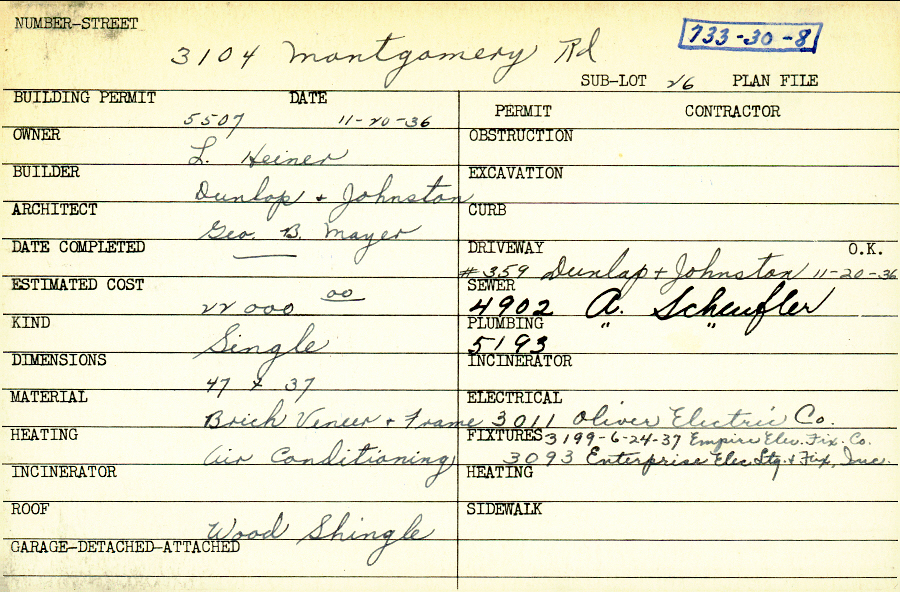 NUMBER-STREET
3104 Montgomery Rd
733-30-8
SUB-LOT 26 PLAN FILE
BUILDING PERMIT DATE
5507 11-20-36
OWNER
L. Heiner
BUILDER
Dunlop + Johnston
ARCHITECT
Geo. B. Mayer
DATE COMPLETED
ESTIMATED COST
22 000 00
KIND
Single
DIMENSIONS
47 x 37
MATERIAL
Brick Veneer + Frame
HEATING
Air Conditioning
INCINERATOR
ROOF
Wood Shingle
GARAGE-DETACHED-ATTACHED
PERMIT CONTRACTOR
OBSTRUCTION
EXCAVATION
CURB
DRIVEWAY O.K.
#359 Dunlap + Johnston 11-20-36
SEWER
4902 A. Scheufler
PLUMBING " "
5193
INCINERATOR
ELECTRICAL
3011 Oliver Electric Co.
FIXTURES 3199-6-24-37 Empire Elec. Fix. Co.
3093 Enterprise Elec Ltg. + Fix, Inc.
HEATING
SIDEWALK